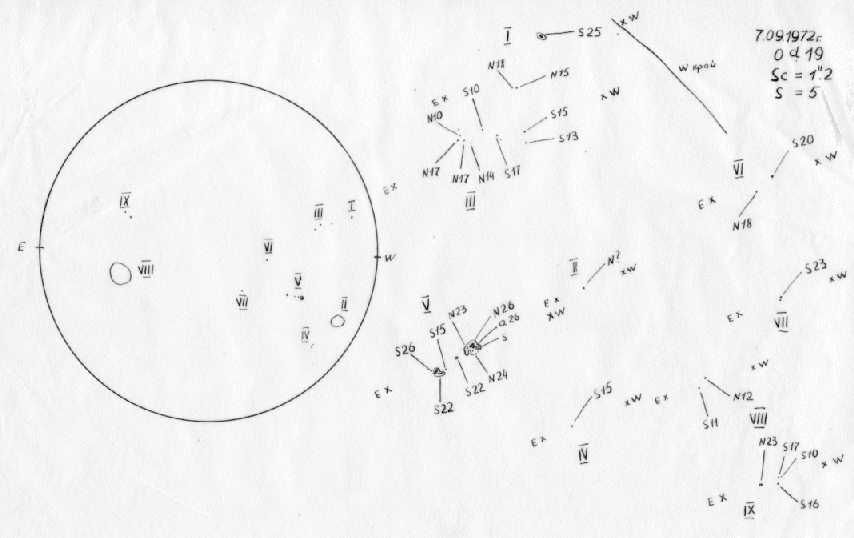 7.09.1972г.
0 19
Sc = 1".2
S = 5
E
W
IX
VIII
VI
VII
V
III
I
II
IV
I
S25
x W
W край
E x
N18
N15
S10
x W
N10
S15
S13
N17
N17
N14
S17
III
E x
VI
S20
x W
E x
N18
II
N?
x W
E x
V
x W
N23
N26
a 26
S
S15
S26
N24
S22
S22
E x
S23
x W
E x
VII
S15
x W
E x
IV
x W
E x
N12
S11
VIII
N23
S17
S10
x W
S16
E x
IX